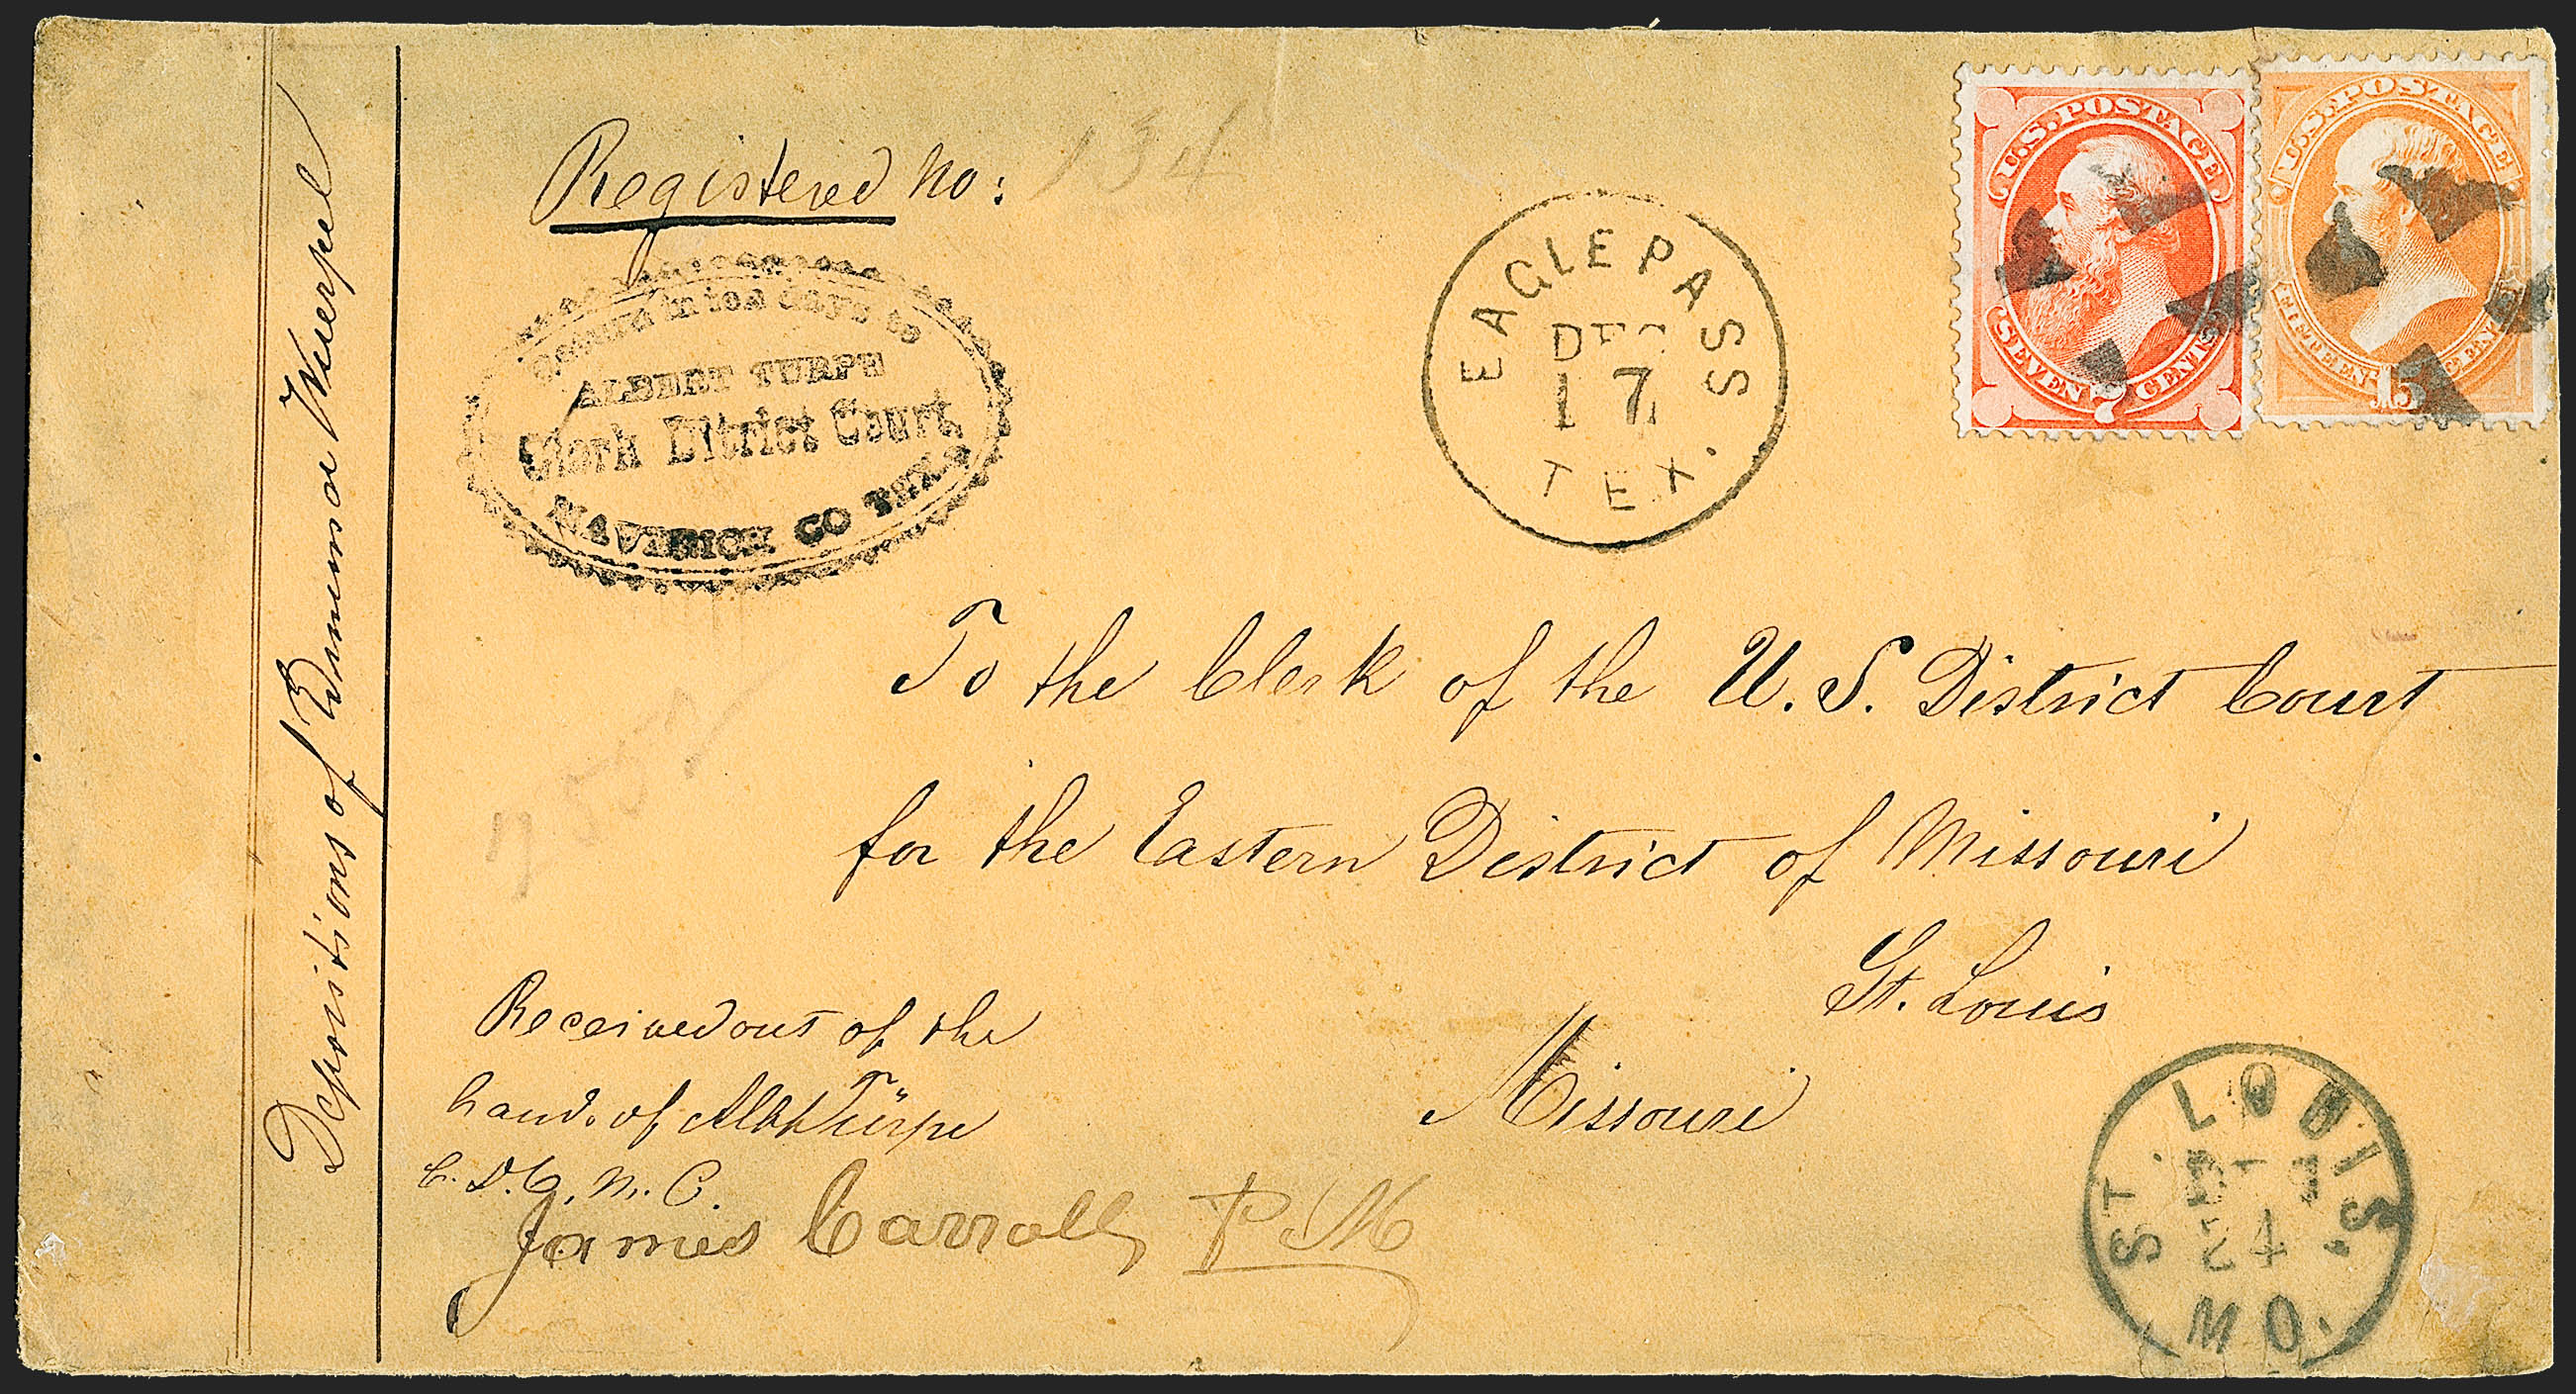 Depositions of Emma Wuerpel
Registered No: 134
Return in ten days to
ALBERT TURPE
Clerk Ditrict Court,
MAVERICK CO TEX.
EAGLE PASS
DEC
17
TEX.
U.S. POSTAGE
SEVEN 7 CENTS
U.S. POSTAGE
FIFTEEN 15 CENTS
To the Clerk of the U. S. District Court
for the Eastern District of Missouri
St. Louis
Missouri
Received out of the
hands of Albt Türpe
C. D. C. M. C.
James Carroll P M
ST. LOUIS,
24
MO.